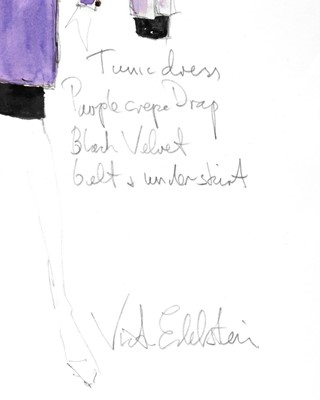 Tunic dress
Purple crepe Drap
Black Velvet
belt & underskirt
Edelstein